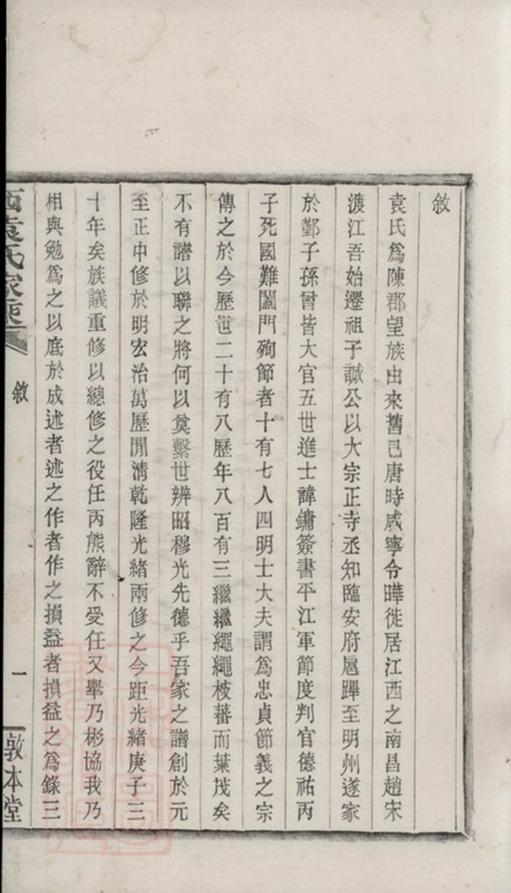 敘
袁氏為陳郡望族由來舊已唐時咸寧令曄徙居江西之南昌趙宋
渡江吾始遷祖子誠公以大宗正寺丞知臨安府扈蹕至明州遂家
於鄞子孫曾皆大官五世進士諱鏞簽書平江軍節度判官德祐丙
子死國難闔門殉節者十有七人四明士大夫謂為忠貞節義之宗
傳之於今歷世二十有八歷年八百有三繼繼繩繩枝蕃而葉茂矣
不有譜以聯之將何以奠繫世辨昭穆光先德乎吾家之譜創於元
至正中修於明宏治萬歷閒清乾隆光緒兩修之今距光緒庚子三
十年矣族議重修以總修之役任丙熊辭不受任又舉乃彬協我乃
相與勉為之以底於成述者述之作者作之損益者損益之為錄三
西袁氏家乘
敘
一
敦本堂